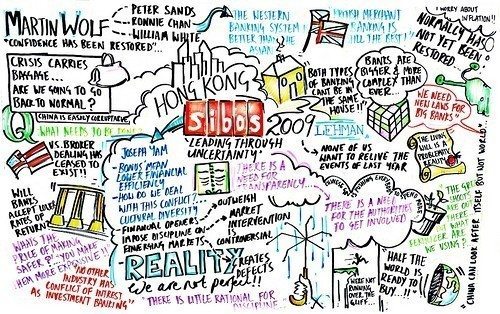 MARTIN WOLF
PETER SANDS
RONNIE CHAN
WILLIAM WHITE
"CONFIDENCE HAS BEEN RESTORED"...
"THE WESTERN
BANKING SYSTEM IS
BETTER THAN THE
ASIAN"
MERCHANT
BANKING IS
STILL THE BEST!
I WORRY ABOUT
INFLATION!!
NORMALCY HAS
NOT YET BEEN
RESTORED...
CRISIS CARRIES
BAGGAGE...
ARE WE GOING TO GO
BACK TO NORMAL?
CHINA IS EASILY
WHAT NEEDS TO BE DONE?
HONG KONG
BOTH TYPES
OF BANKING
CANT BE IN
THE SAME
HOUSE!!
BANKS ARE
BIGGER & MORE
COMPLEX THAN
EVER...
WE NEED
NEW LAWS FOR
BIG BANKS"
sibos
2009
"LEADING THROUGH
UNCERTAINTY"
LEHMAN
NONE OF US
WANT TO RELIVE THE
EVENTS OF LAST YEAR
THE LIVING
WILL IS A
PROBLEMATIC
REALITY
U.S. BROKER
DEALING HAS
CEASED TO
EXIST!!
JOSEPH YAM
BONUS' MEAN
LOWER FINANCIAL
EFFICIENCY
HOW DO WE DEAL
WITH THIS CONFLICT?...
CULTURAL DIVERSITY...
FINANCIAL OPENERS
IMPOSE DISCIPLINE ON
EMERGING MARKETS
THERE IS A
NEED FOR
TRANSPARENCY...
OUTWEIGH
MARKET
INTERVENTION
CONTROVERSIAL
THERE IS A NEED
FOR THE AUTHORITIES
TO GET INVOLVED
WILL
BANKS
ACCEPT LOWER
RATES OF
RETURN
WHATS THE
PRICE OF MAKING
SAFER?... YOU MAKE
THEM MORE EXPENSIVE!!
"NO OTHER
INDUSTRY HAS
CONFLICT OF INTEREST
AS INVESTMENT BANKING"
REALITY
CREATES
DEFECTS
We are not perfect!!
"THERE IS LITTLE RATIONAL FOR
DISCIPLINE"
WERE NOT
RUNNING
OVER THE
CLIFF...
HALF THE
WORLD IS
READY TO
BUY...!!
THE GREEN
SHOOTS
ARE OUT
THERE
BUT WHAT
FERTILIZER ARE
WE USING?
"CHINA CAN LOOK AFTER ITSELF BUT NOT WORLD"